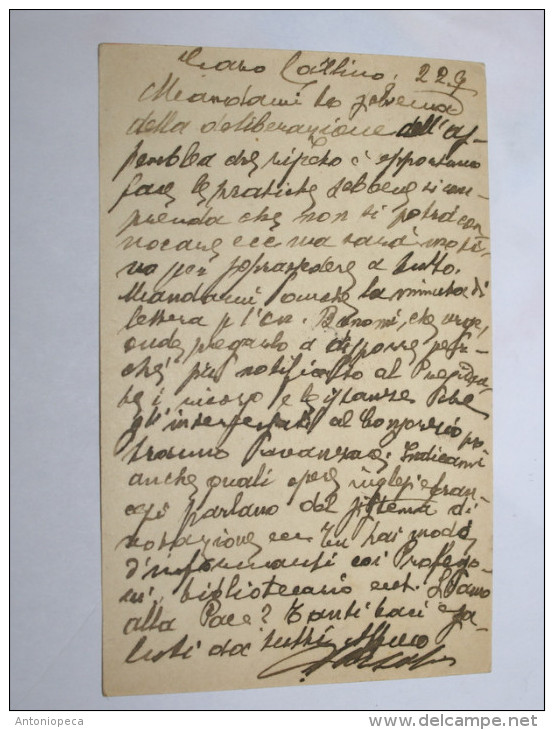 Caro 22 9
Mandami lo schema
della deliberazione dell'as-
semblea che ripeto è opportuno
fare le pratiche sebbene si com-
prenda che non si potrà con-
vocare ecc ma sarà moti-
vo per soprassedere a tutto.
Mandami anche la minuta di
lettera p l'on. Bonomi, che urge,
onde pregarlo a disporre per-
chè sia notificato al
il ricorso e le istanze che
gl'interessati al Consorzio po-
tranno Indicami
anche quali opere inglesi e fran-
cesi parlano del sistema di
votazione ecc Tu hai modo
d'informarti coi Professo-
ri, bibliotecario ecc.
alla Pace? Tanti baci e sa-
luti da tutti
Antoniopeca